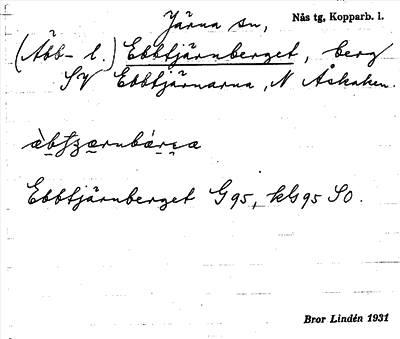 Järna sn, Nås tg, Kopparb. l.
(Äbb- l.) Ebbtjärnberget, berg
SV Ebbtjärnarna, N Åskaken.
Ebbtjärnberget G95, kG95 SO.
Bror Lindén 1931